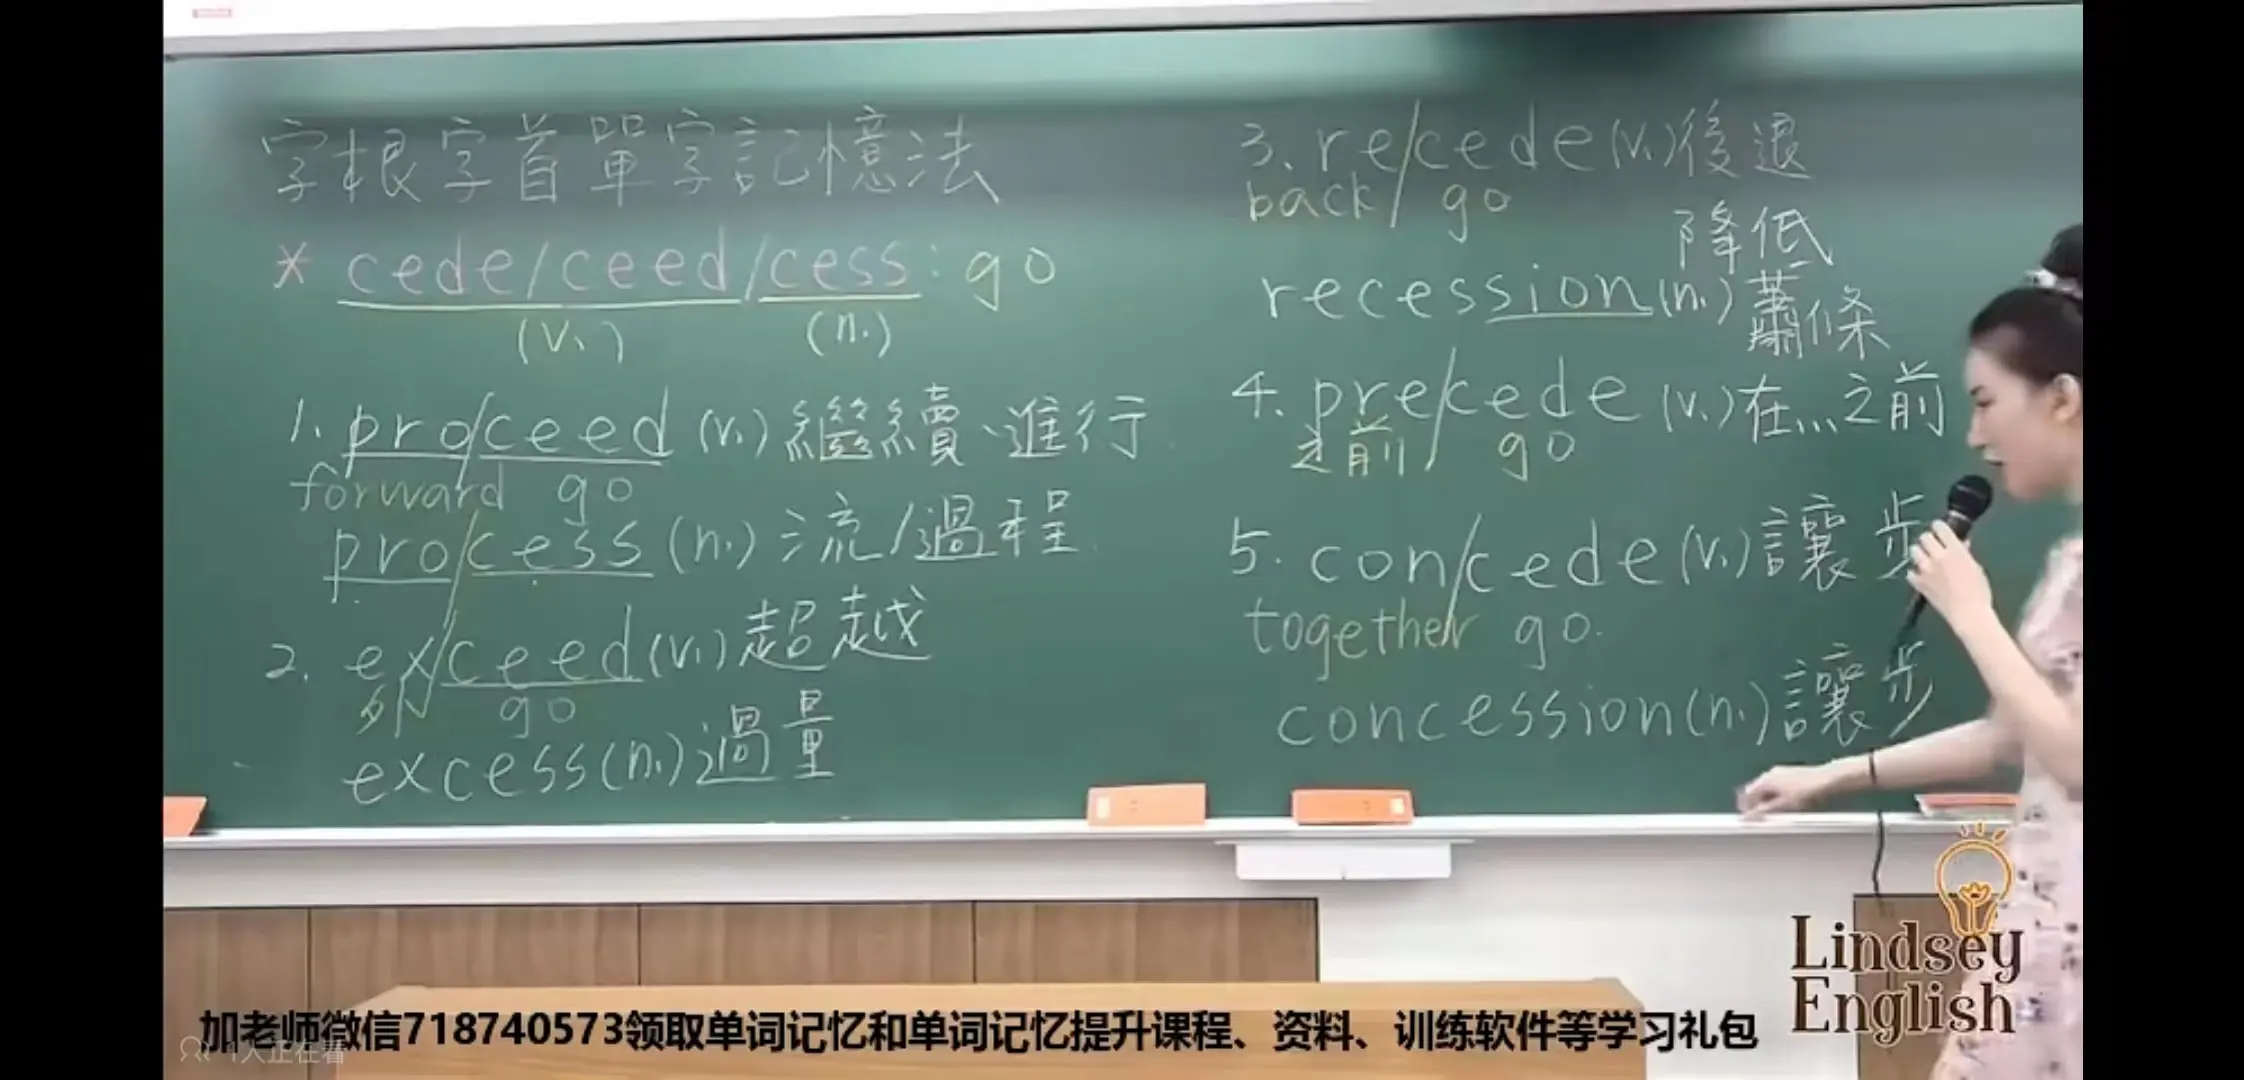 字根字首單字記憶法
* cede/ceed/cess：go
(v.) (n.)
1. pro/ceed (v.) 繼續、進行
forward go
pro/cess (n.) 流/過程
2. ex/ceed (v.) 超越
外 go
excess (n.) 過量
3. re/cede (v.) 後退
back/ go
降低
recession (n.) 蕭條
4. pre/cede (v.) 在...之前
之前/ go
5. con/cede (v.) 讓步
together go.
concession (n.) 讓步
Lindsey
English
加老师微信718740573领取单词记忆和单词记忆提升课程、资料、训练软件等学习礼包
1人正在看